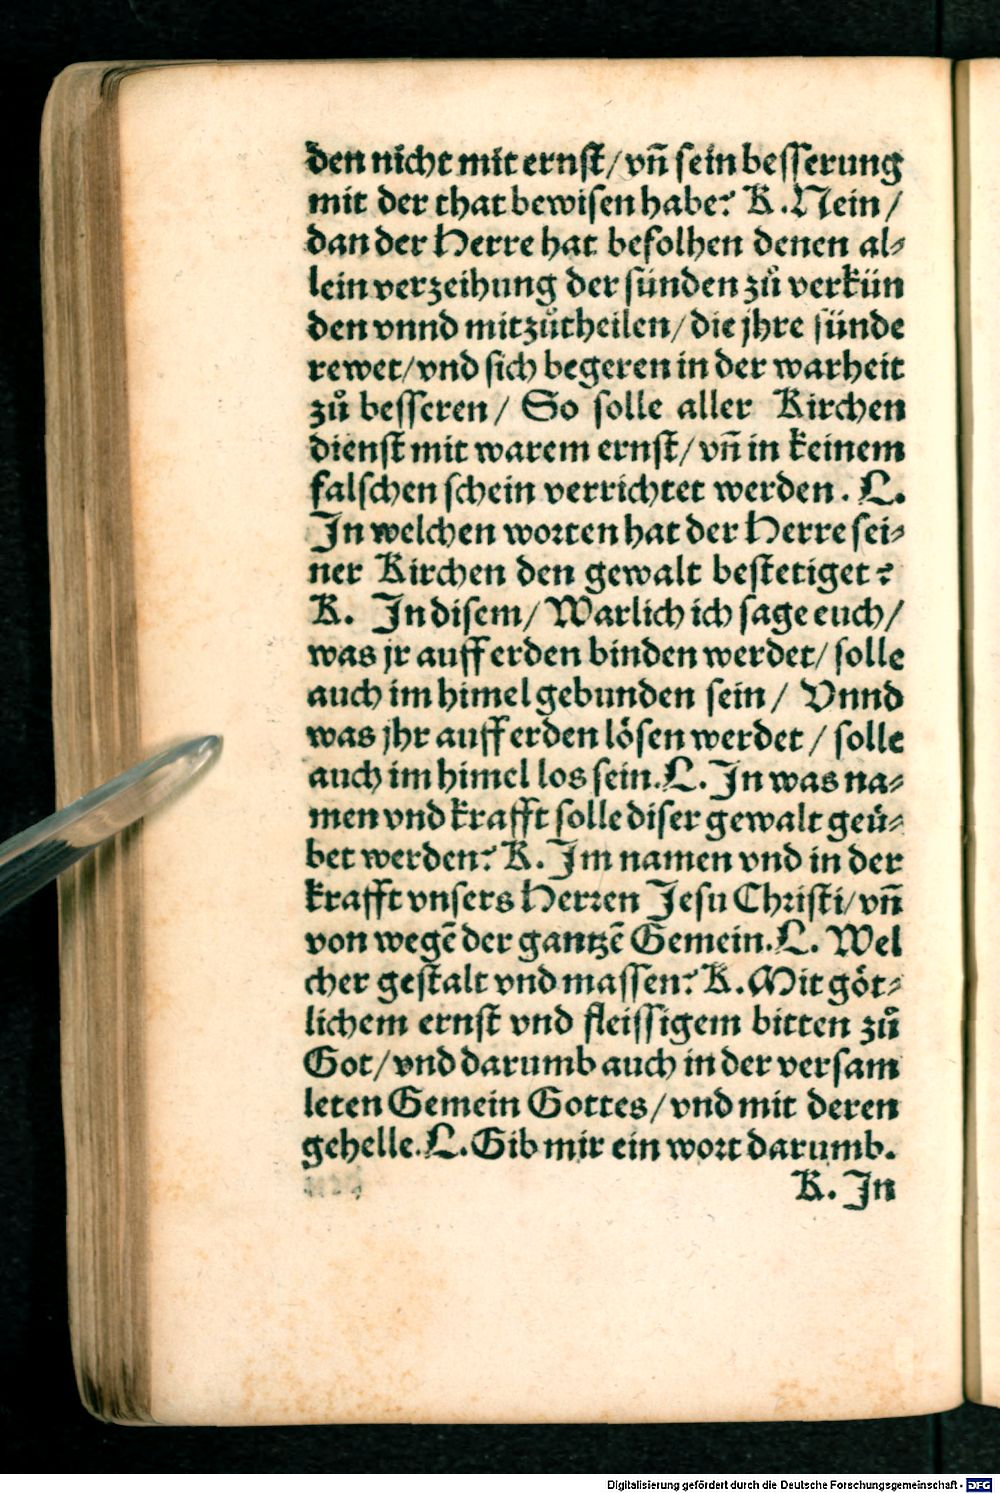 den nicht mit ernſt/ vñ ſein beſſerung
mit der that bewiſen habe? K. Nein/
dan der Herre hat befolhen denen al⸗
lein verzeihung der ſünden zů verkün
den vnnd mitzůtheilen/ die jhre ſünde
rewet/ vnd ſich begeren in der warheit
zů beſſeren/ So ſolle aller Kirchen
dienſt mit warem ernſt/ vñ in keinem
falſchen ſchein verrichtet werden. L.
In welchen woꝛten hat der Herre ſei⸗
ner Kirchen den gewalt beſtetiget?
K. In diſem/ Warlich ich ſage euch/
was jr auff erden binden werdet/ ſolle
auch im himel gebunden ſein/ Vnnd
was jhr auff erden löſen werdet/ ſolle
auch im himel los ſein. L. In was na⸗
men vnd krafft ſolle diſer gewalt geü⸗
bet werden? K. Im namen vnd in der
krafft vnſers Herꝛen Jeſu Chꝛiſti/ vñ
von wegẽ der gantzẽ Gemein. L. Wel
cher geſtalt vnd maſſen? K. Mit göt⸗
lichem ernſt vnd fleiſſigem bitten zů
Got/ vnd darumb auch in der verſam
leten Gemein Gottes/ vnd mit deren
gehelle. L. Gib mir ein woꝛt darumb.
K. In
Digitalisierung gefördert durch die Deutsche Forschungsgemeinschaft - DFG